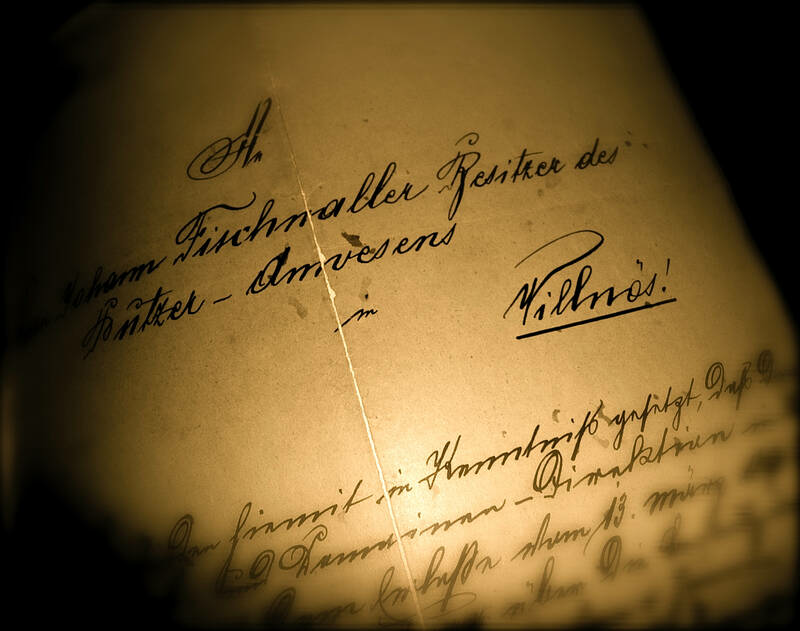 An
Johann Fischnaller Besitzer des
Putzer-Anwesens
in
Villnös!
hiemit in Kenntniß gesetzt, daß
Domainen-Direktion
Erlaße vom 13. März
über Die